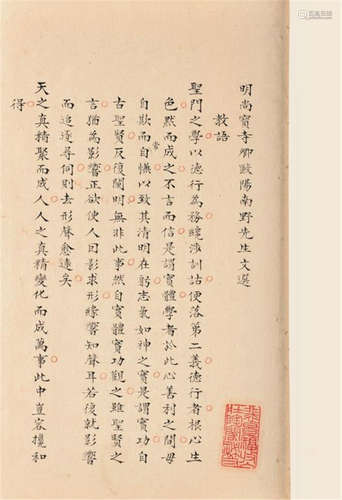 明尚寶寺卿歐陽南野先生文選
教語
聖門之學以德行為務纔涉訓詁便落第二義德行者根心生
色默而成之不言而信是謂實體學者於此心善利之間毋
自欺而常自慊以致其清明在躬志氣如神之實是謂實功自
古聖賢反復闡明無非此事然自實體實功觀之雖聖賢之
言猶為影響正欲使人因影求形緣響知聲耳若復就影響
而追逐尋伺則去形聲愈遠矣
天之真精聚而成人人之真精變化而成萬事此中豈容攙和
得